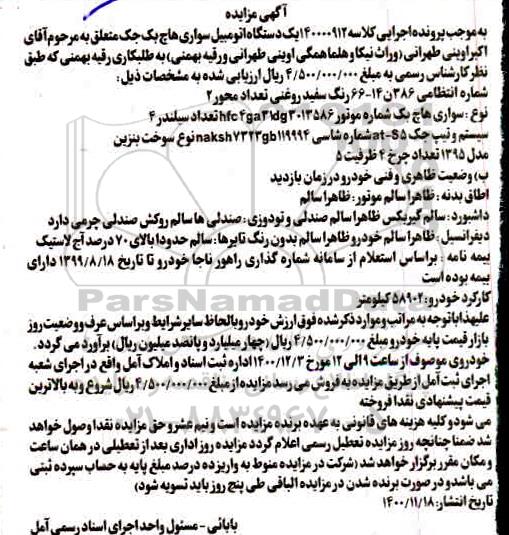 آگهی مزایده
به موجب پرونده اجرایی کلاسه ۱۴۰۰۰۰۹۱۲ یک دستگاه اتومبیل سواری هاچ بک جک متعلق به مرحوم آقای
اکبر اوینی طهرانی (وراث نیکا و هلما همگی اوینی طهرانی و رقیه بهمنی) به طلبکاری رقیه بهمنی که طبق
نظر کارشناس رسمی به مبلغ ۴/۵۰۰/۰۰۰/۰۰۰ ریال ارزیابی شده به مشخصات ذیل:
شماره انتظامی ۳۸۶ن۱۴-۶۶ رنگ سفید روغنی تعداد محور ۲
نوع: سواری هاچ بک شماره موتور hfc۴ga۳۱dg۳۰۱۳۵۸۶ تعداد سیلندر ۴
سیستم و تیپ جک at-s5 شماره شاسی naksh۷۳۲۳gb۱۱۹۹۹۴ نوع سوخت بنزین
مدل ۱۳۹۵ تعداد چرخ ۴ ظرفیت ۵
ب) وضعیت ظاهری و فنی خودرو در زمان بازدید
اطاق بدنه: ظاهرا سالم موتور: ظاهرا سالم
داشبورد: سالم گیربکس ظاهرا سالم صندلی و تودوزی: صندلی ها سالم روکش صندلی چرمی دارد
دیفرانسیل: ظاهرا سالم خودرو ظاهرا سالم بدون رنگ تایرها: سالم حدودا بالای ۷۰ درصد آج لاستیک
بیمه نامه: براساس استعلام از سامانه شماره گذاری راهور ناجا خودرو تا تاریخ ۱۳۹۹/۸/۱۸ دارای
بیمه بوده است
کارکرد خودرو: ۵۸۹۰۲ کیلومتر
علیهذا با توجه به مراتب و موارد ذکر شده فوق ارزش خودرو بالحاظ سایر شرایط و براساس عرف و وضعیت روز
بازار قیمت پایه خودرو مبلغ ۴/۵۰۰/۰۰۰/۰۰۰ ریال (چهار میلیارد و پانصد میلیون ریال) برآورد می گردد.
خودروی موصوف از ساعت ۹ الی ۱۲ مورخ ۱۴۰۰/۱۲/۳ اداره ثبت اسناد و املاک آمل واقع در اجرای شعبه
اجرای ثبت آمل از طریق مزایده به فروش می رسد مزایده از مبلغ ۴/۵۰۰/۰۰۰/۰۰۰ ریال شروع و به بالاترین
قیمت پیشنهادی نقدا فروخته
می شود و کلیه هزینه های قانونی به عهده برنده مزایده است و نیم عشر و حق مزایده نقدا وصول خواهد
شد ضمنا چنانچه روز مزایده تعطیل رسمی اعلام گردد مزایده روز اداری بعد از تعطیلی در همان ساعت
و مکان مقرر برگزار خواهد شد (شرکت در مزایده منوط به واریز ده درصد مبلغ پایه به حساب سپرده ثبتی
می باشد و در صورت برنده شدن در مزایده الباقی طی پنج روز باید تسویه شود)
تاریخ انتشار: ۱۴۰۰/۱۱/۱۸
بابائی - مسئول واحد اجرای اسناد رسمی آمل
ParsNamadData